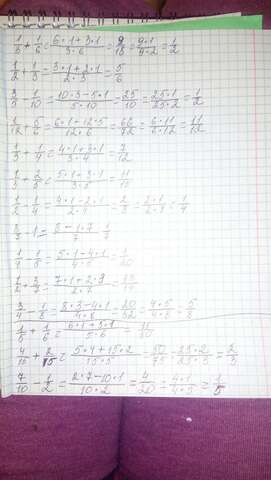 1/3 + 1/6 = (6·1+3·1)/(3·6) = 9/18 = (9·1)/(9·2) = 1/2
1/2 + 1/3 = (3·1+2·1)/(2·3) = 5/6
3/5 - 1/10 = (10·3-5·1)/(5·10) = 25/50 = (25·1)/(25·2) = 1/2
1/12 + 5/6 = (6·1+12·5)/(12·6) = 66/72 = (6·11)/(6·12) = 11/12
1/3 + 1/4 = (4·1+3·1)/(3·4) = 7/12
1/3 + 2/5 = (5·1+3·2)/(3·5) = 11/15
1/2 - 1/4 = (4·1-2·1)/(2·4) = 2/8 = (2·1)/(2·4) = 1/4
1/4 - 1/5 = (5·1-4·1)/(4·5) = 1/20
3/4 - 1/8 = (8·3-4·1)/(4·8) = 20/32 = (4·5)/(4·8) = 5/8
1/5 + 1/6 = (6·1+5·1)/(5·6) = 11/30
4/15 + 2/5 = (5·4+15·2)/(15·5) = 50/75 = (25·2)/(25·3) = 2/3
7/10 - 1/2 = (2·7-10·1)/(10·2) = 4/20 = (4·1)/(4·5) = 1/5